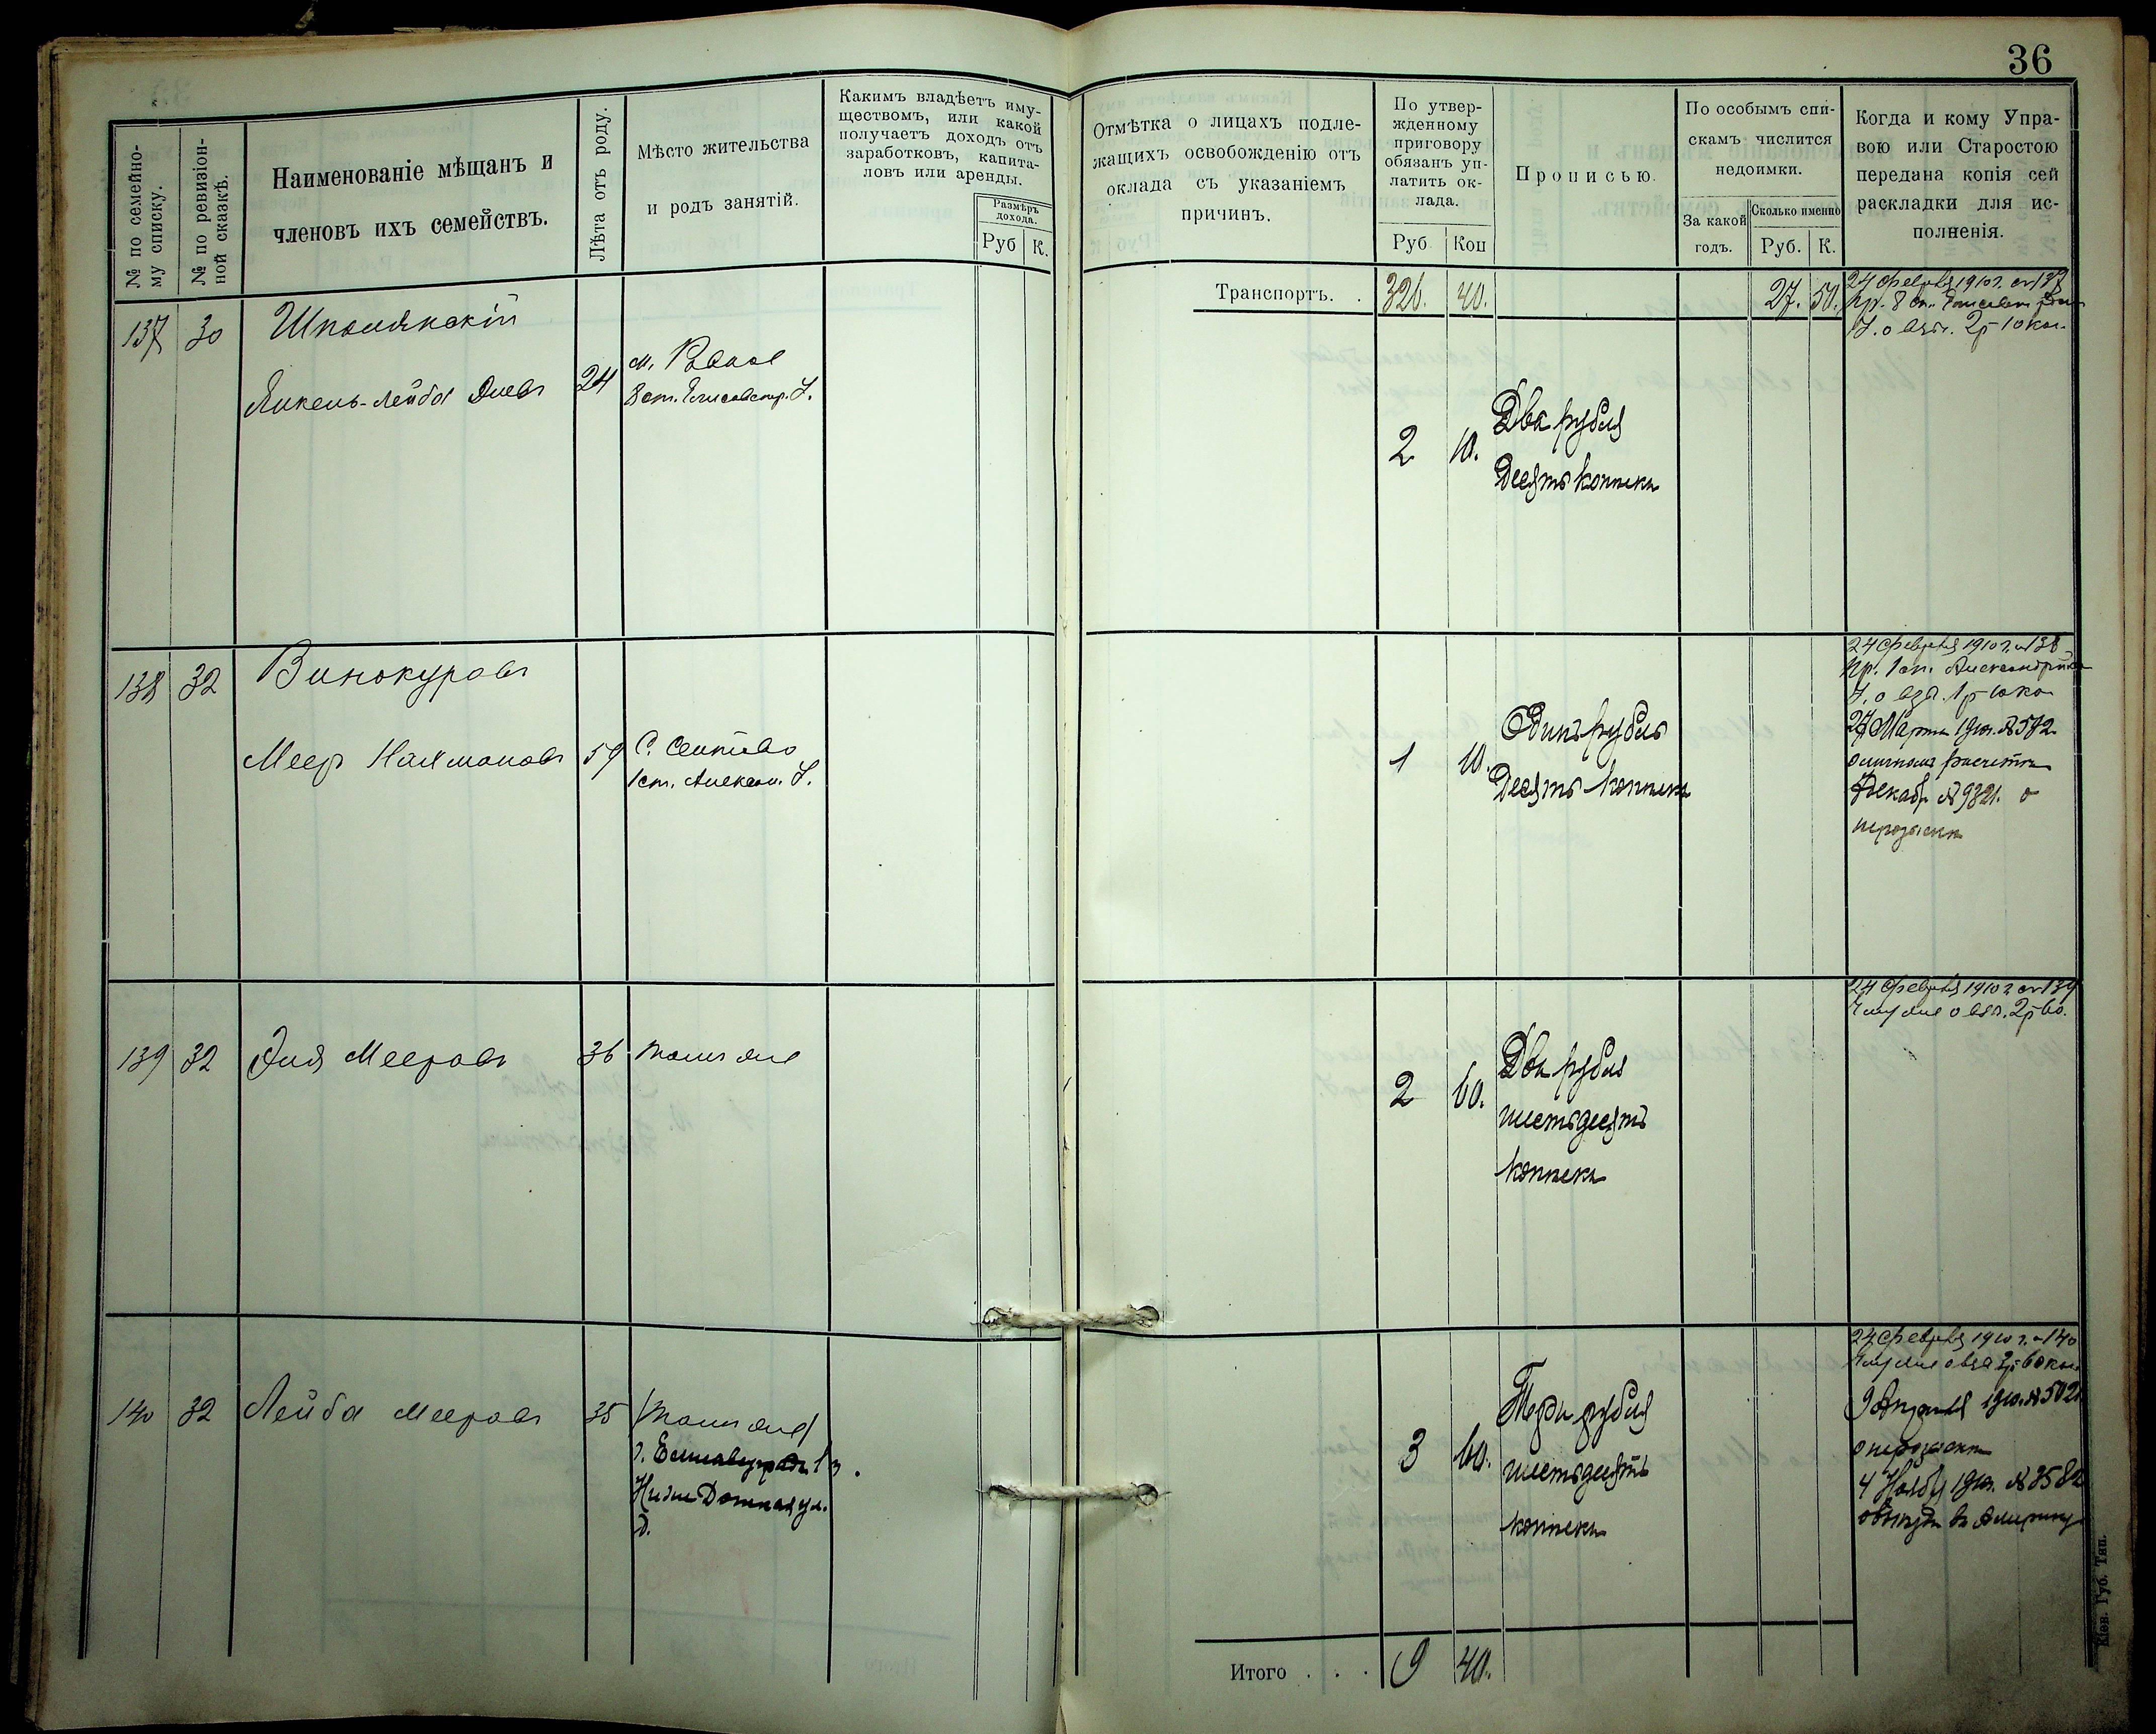 36
№ по семейно-
му списку.
№ по ревизіон-
ной сказкѣ.
Наименованіе мѣщанъ и
членовъ ихъ семействъ.
Лѣта отъ роду.
Мѣсто жительства
и родъ занятій.
Какимъ владѣетъ иму-
ществомъ, или какой
получаетъ доходъ отъ
заработковъ, капита-
ловъ или аренды.
Размѣръ
дохода.
Руб К.
Отмѣтка о лицахъ подле-
жащихъ освобожденію отъ
оклада съ указаніемъ
причинъ.
По утвер-
жденному
приговору
обязанъ уп-
латить ок-
лада.
Руб Коп
Прописью.
По особымъ спи-
скамъ числится
недоимки.
За какой
годъ.
Сколько именно
Руб. К.
Когда и кому Упра-
вою или Старостою
передана копія сей
раскладки для ис-
полненія.
Транспортъ. . 326. 40. 27. 50.
137 30 Шполянскій
Янкель-Лейба 24
м. Ровное
2 10. Два рубля
Десять копѣекъ
24 Февраля 1910 г. 137
138 32 Винокуровъ
Меер Нахмановъ 59
1 ст. Алексан. У.
1 10. Одинъ рубль
Десять копѣекъ
24 Февраля 1910 г. 138
пр. 1 ст. Александрійск
27 Марта 1910. № 572
Декабр № 9321. о
139 32 Эля Мееровъ 36 тоже
2 60. Два рубля
шестьдесятъ
копѣекъ
24 Февраля 1910 г. 139
140 32 Лейба Мееровъ 35
г. Елисаветградъ
Нижне Донная ул.
д.
3 60. Три рубля
шестьдесятъ
копѣекъ
24 Февраля 1910 г. 140
9 Апреля 1910. № 502
4 Ноября 1910. № 8582
въ Америку
Итого . . . 9 40.
Кіев. Губ. Тип.